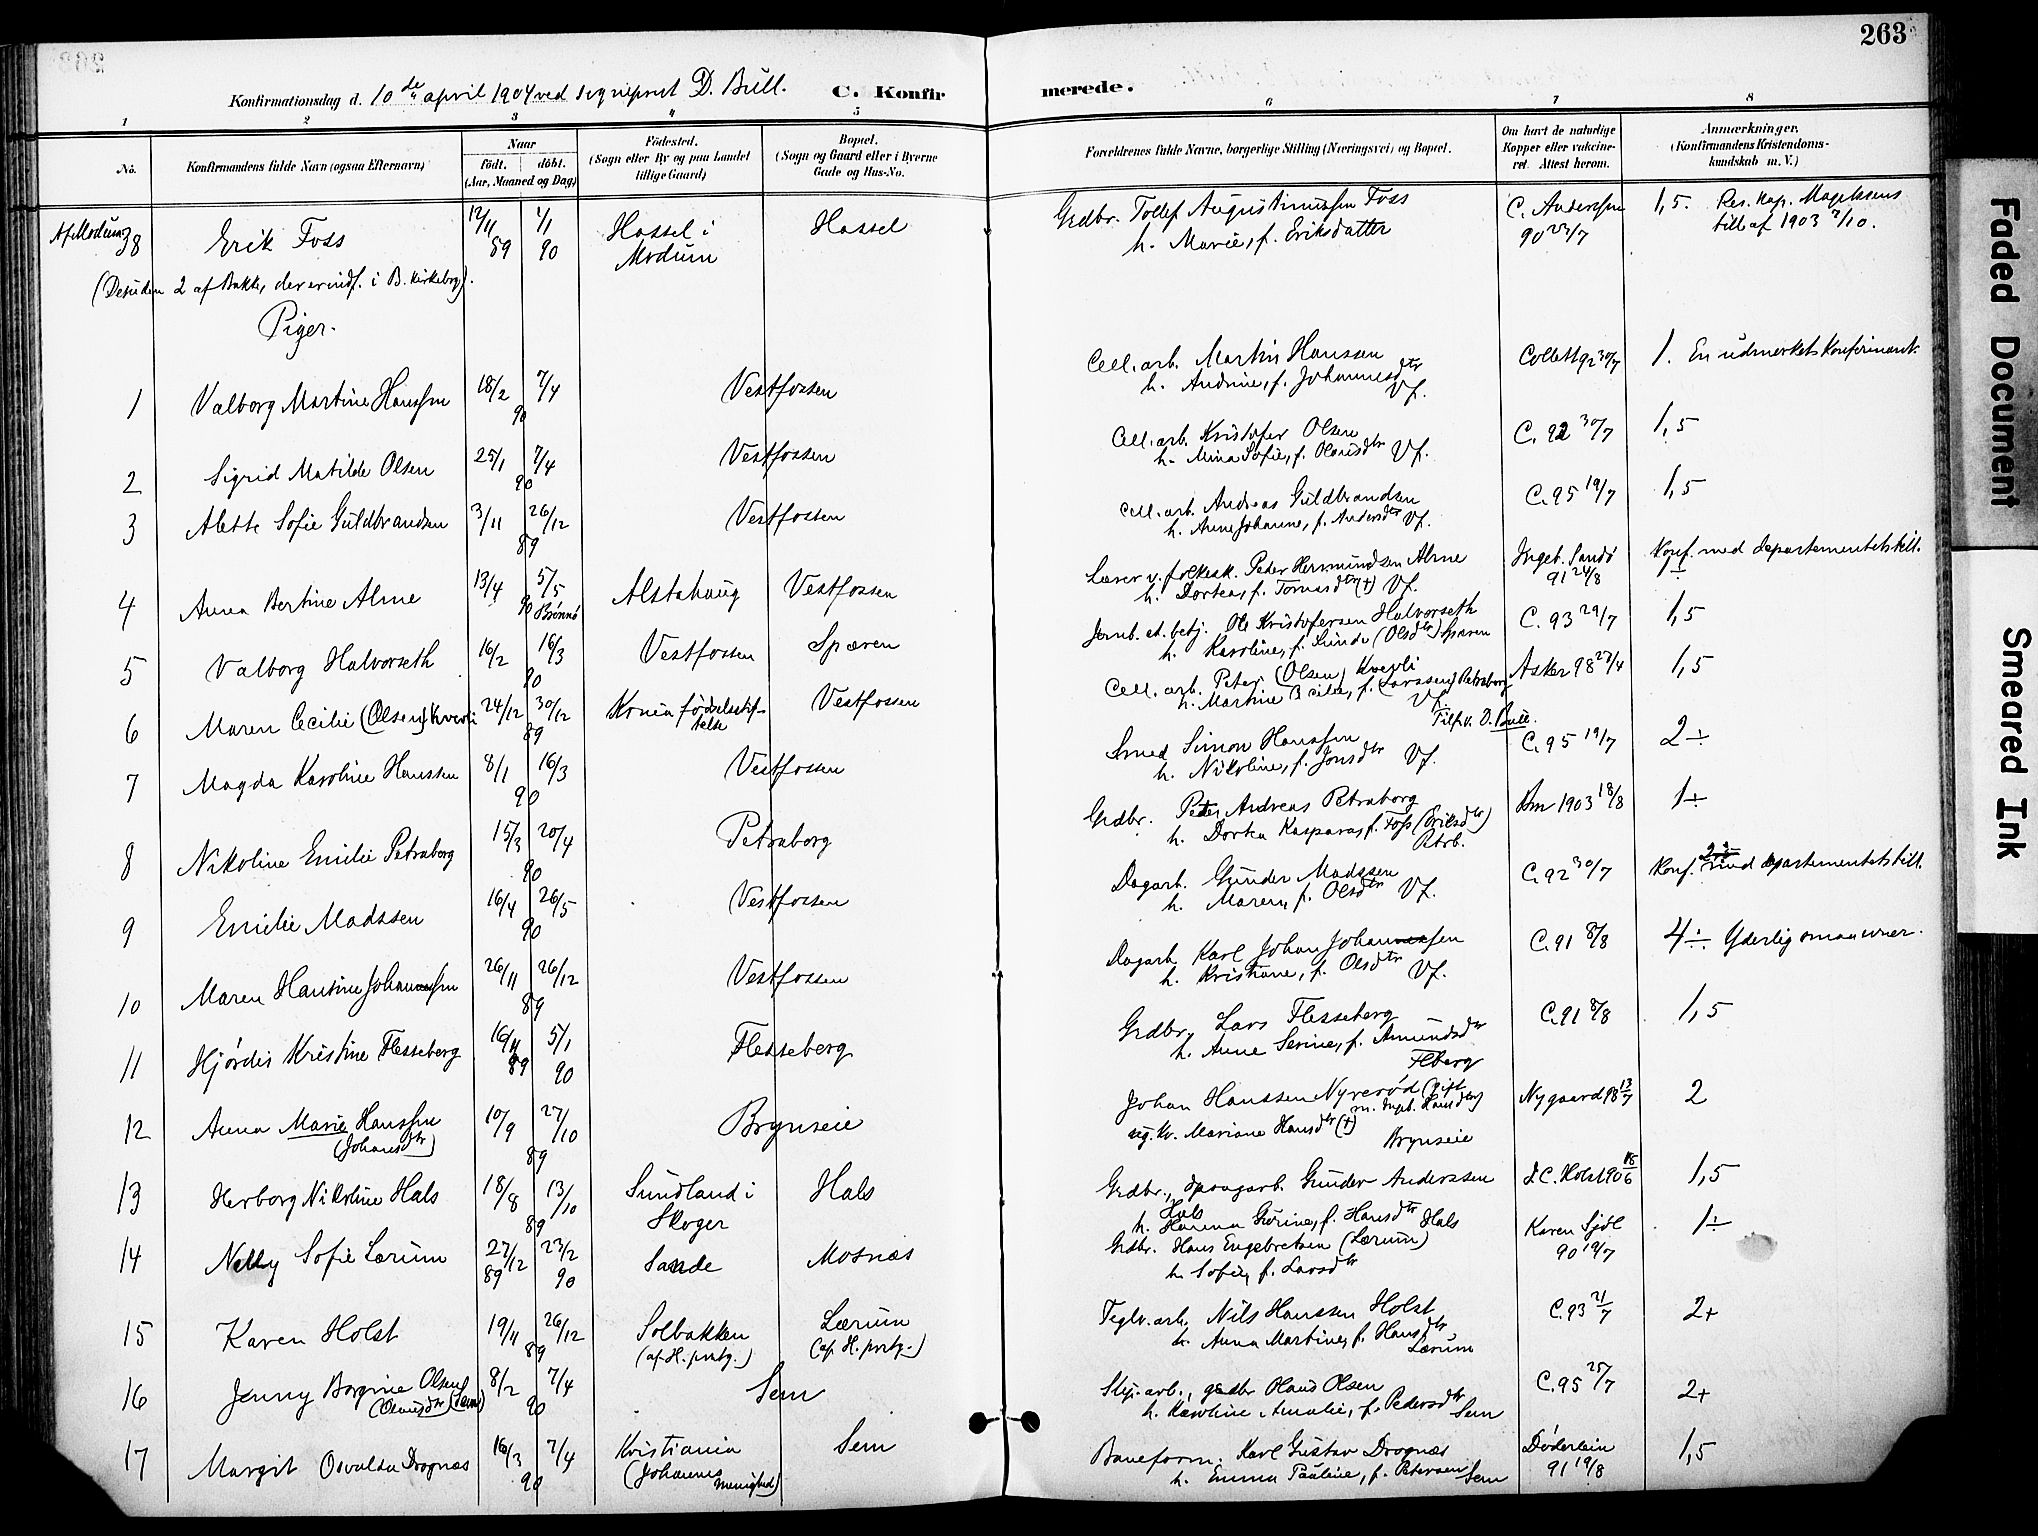 263
Konfirmationsdag d. 10de april 1904 ved sogneprest D. Bull. C. Konfirmerede.
1 2 3 4 5 6 7 8
No. Konfirmandens fulde Navn (ogsaa Efternavn) Naar født. døbt. (Aar, Maaned og Dag) Fødested. (Sogn eller By og paa Landet tillige Gaard) Bopæl. (Sogn og Gaard eller i Byerne Gade og Hus-No. Forældrenes fulde Navne, borgerlige Stilling (Næringsvei) og Bopæl. Om havt de naturlige Kopper eller vakcineret. Attest herom. Anmærkninger. (Konfirmandens Kristendomskundskab m. V.)
Af Modum 38 Erik Foss 12/11 89 1/1 90 Hassel i Modum Hassel Grdbr. Tollef Augustinussen Foss h. Marie, f. Eriksdatter C. Anderssen 90 23/7 1,5. Res. kap. Magelssens till af 1903 7/10.
(Desuden 2 af Bakke, der er indf. i B. kirkebog).
Piger.
1 Valborg Martine Hanssen 18/2 7/4 90 Vestfossen Cell. arb. Martin Hanssen h. Andrine, f. Johannesdtr Vf. Collett 92 30/7 1. En udmerket konfirmant.
2 Sigrid Matilde Olsen 25/1 7/4 90 Vestfossen Cell. arb. Kristofer Olsen h. Mina Sofie, f. Olausdtr Vf. C. 92 30/7 1,5
3 Alette Sofie Guldbrandsen 3/11 26/12 89 Vestfossen Cell. arb. Andreas Guldbrandsen h. Anne Johanne, f. Andersdtr Vf. C. 95 19/7 1,5
4 Anna Bertine Alme 13/4 5/5 90 Brønnø Alstahaug Vestfossen Lærer v. folkesk. Peter Hermundsen Alme h. Dortea, f. Tomasdtr (+) Vf. Ingeb. Sandø 91 24/8 Konf. med departementets till. 1÷
5 Valborg Halvorseth 16/2 16/3 90 Vestfossen Spæren Jernb. et. betj. Ole Kristofersen Halvorseth h. Karoline, f. Lunde (Olsdtr) Spæren C. 93 29/7 1,5
6 Maren Cecilie (Olsen) Kverli 24/12 30/12 89 Kr.nia fødselsstiftelse Vestfossen Cell. arb. Peter (Olsen) Kverli h. Martine Bcilie, f. (Larssen) Petraborg Vf. Asker 98 27/4 1,5
Tilf. v. D. Bull.
7 Magda Karoline Hanssen 8/1 16/3 90 Vestfossen Smed Simon Hanssen h. Nikoline, f. Jonsdtr Vf. C. 95 19/7 2÷
8 Nikoline Emilie Petraborg 15/3 20/4 90 Petraborg Grdbr. Peter Andreas Petraborg h. Dortea Kaspara, f. Foss (Eriksdtr) Ptrb. 1903 18/8 1÷
9 Emilie Madssen 16/4 26/5 90 Vestfossen Dagarb. Gunder Madssen h. Maren, f. Olsdtr Vf. C. 92 30/7 Konf. med departementets till.
10 Maren Hantine Johanssen 26/11 26/12 89 Vestfossen Dagarb. Karl Johan Johanssen h. Kristiane, f. Olsdtr Vf. C. 91 8/8 4÷ Yderlig smaa evner.
11 Hjørdis Kristine Flesseberg 16/11 89 5/1 90 Flesseberg Grdbr. Lars Flesseberg h. Anne Serine, f. Amundsdtr Flberg C. 91 8/8 1,5
12 Anna Marie Hanssen (Johansdtr) 10/9 27/10 89 Brynseie Johan Hanssen Nyverød (gift m. Ingb. Hansdtr) ug. kv. Mariane Hansdtr (+) Brynseie Nygaard 98 13/7 2
13 Herborg Nikoline Hals 18/8 13/10 89 Sundland i Skoger Hals Grdbr., spongarb. Gunder Anderssen Hals h. Hanna Gurine, f. Hansdtr Hals J. C. Holst 90 18/6 1,5
14 Nelly Sofie Lærum 27/12 89 23/2 90 Sande Mosnæs Grdbr. Hans Engebretsen (Lærum) h. Sofie, f. Larsdtr Karen Sjøl 90 19/7 1÷
15 Karen Holst 19/11 26/12 89 Solbakken (af H. prstg.) Lærum (af H. prstg.) Teglv. arb. Nils Hanssen Holst h. Anna Martine, f. Hansdtr Lærum C. 93 21/7 2+
16 Jenny Borgine Olsen (Olausdtr) (Sem) 8/2 7/4 90 Sem Slip. arb., grdbr Olaus Olsen h. Karoline Amalie, f. Pedersdtr Sem C. 95 25/7 2+
17 Margit Osvalda Dragnæs 16/3 7/4 90 Kristiania (Johannes menighed) Sem Baneform. Karl Gustav Dragnæs h. Emma Pauline, f. Petersen Sem Døderlein 91 19/8 1,5
Faded Document
Smeared Ink